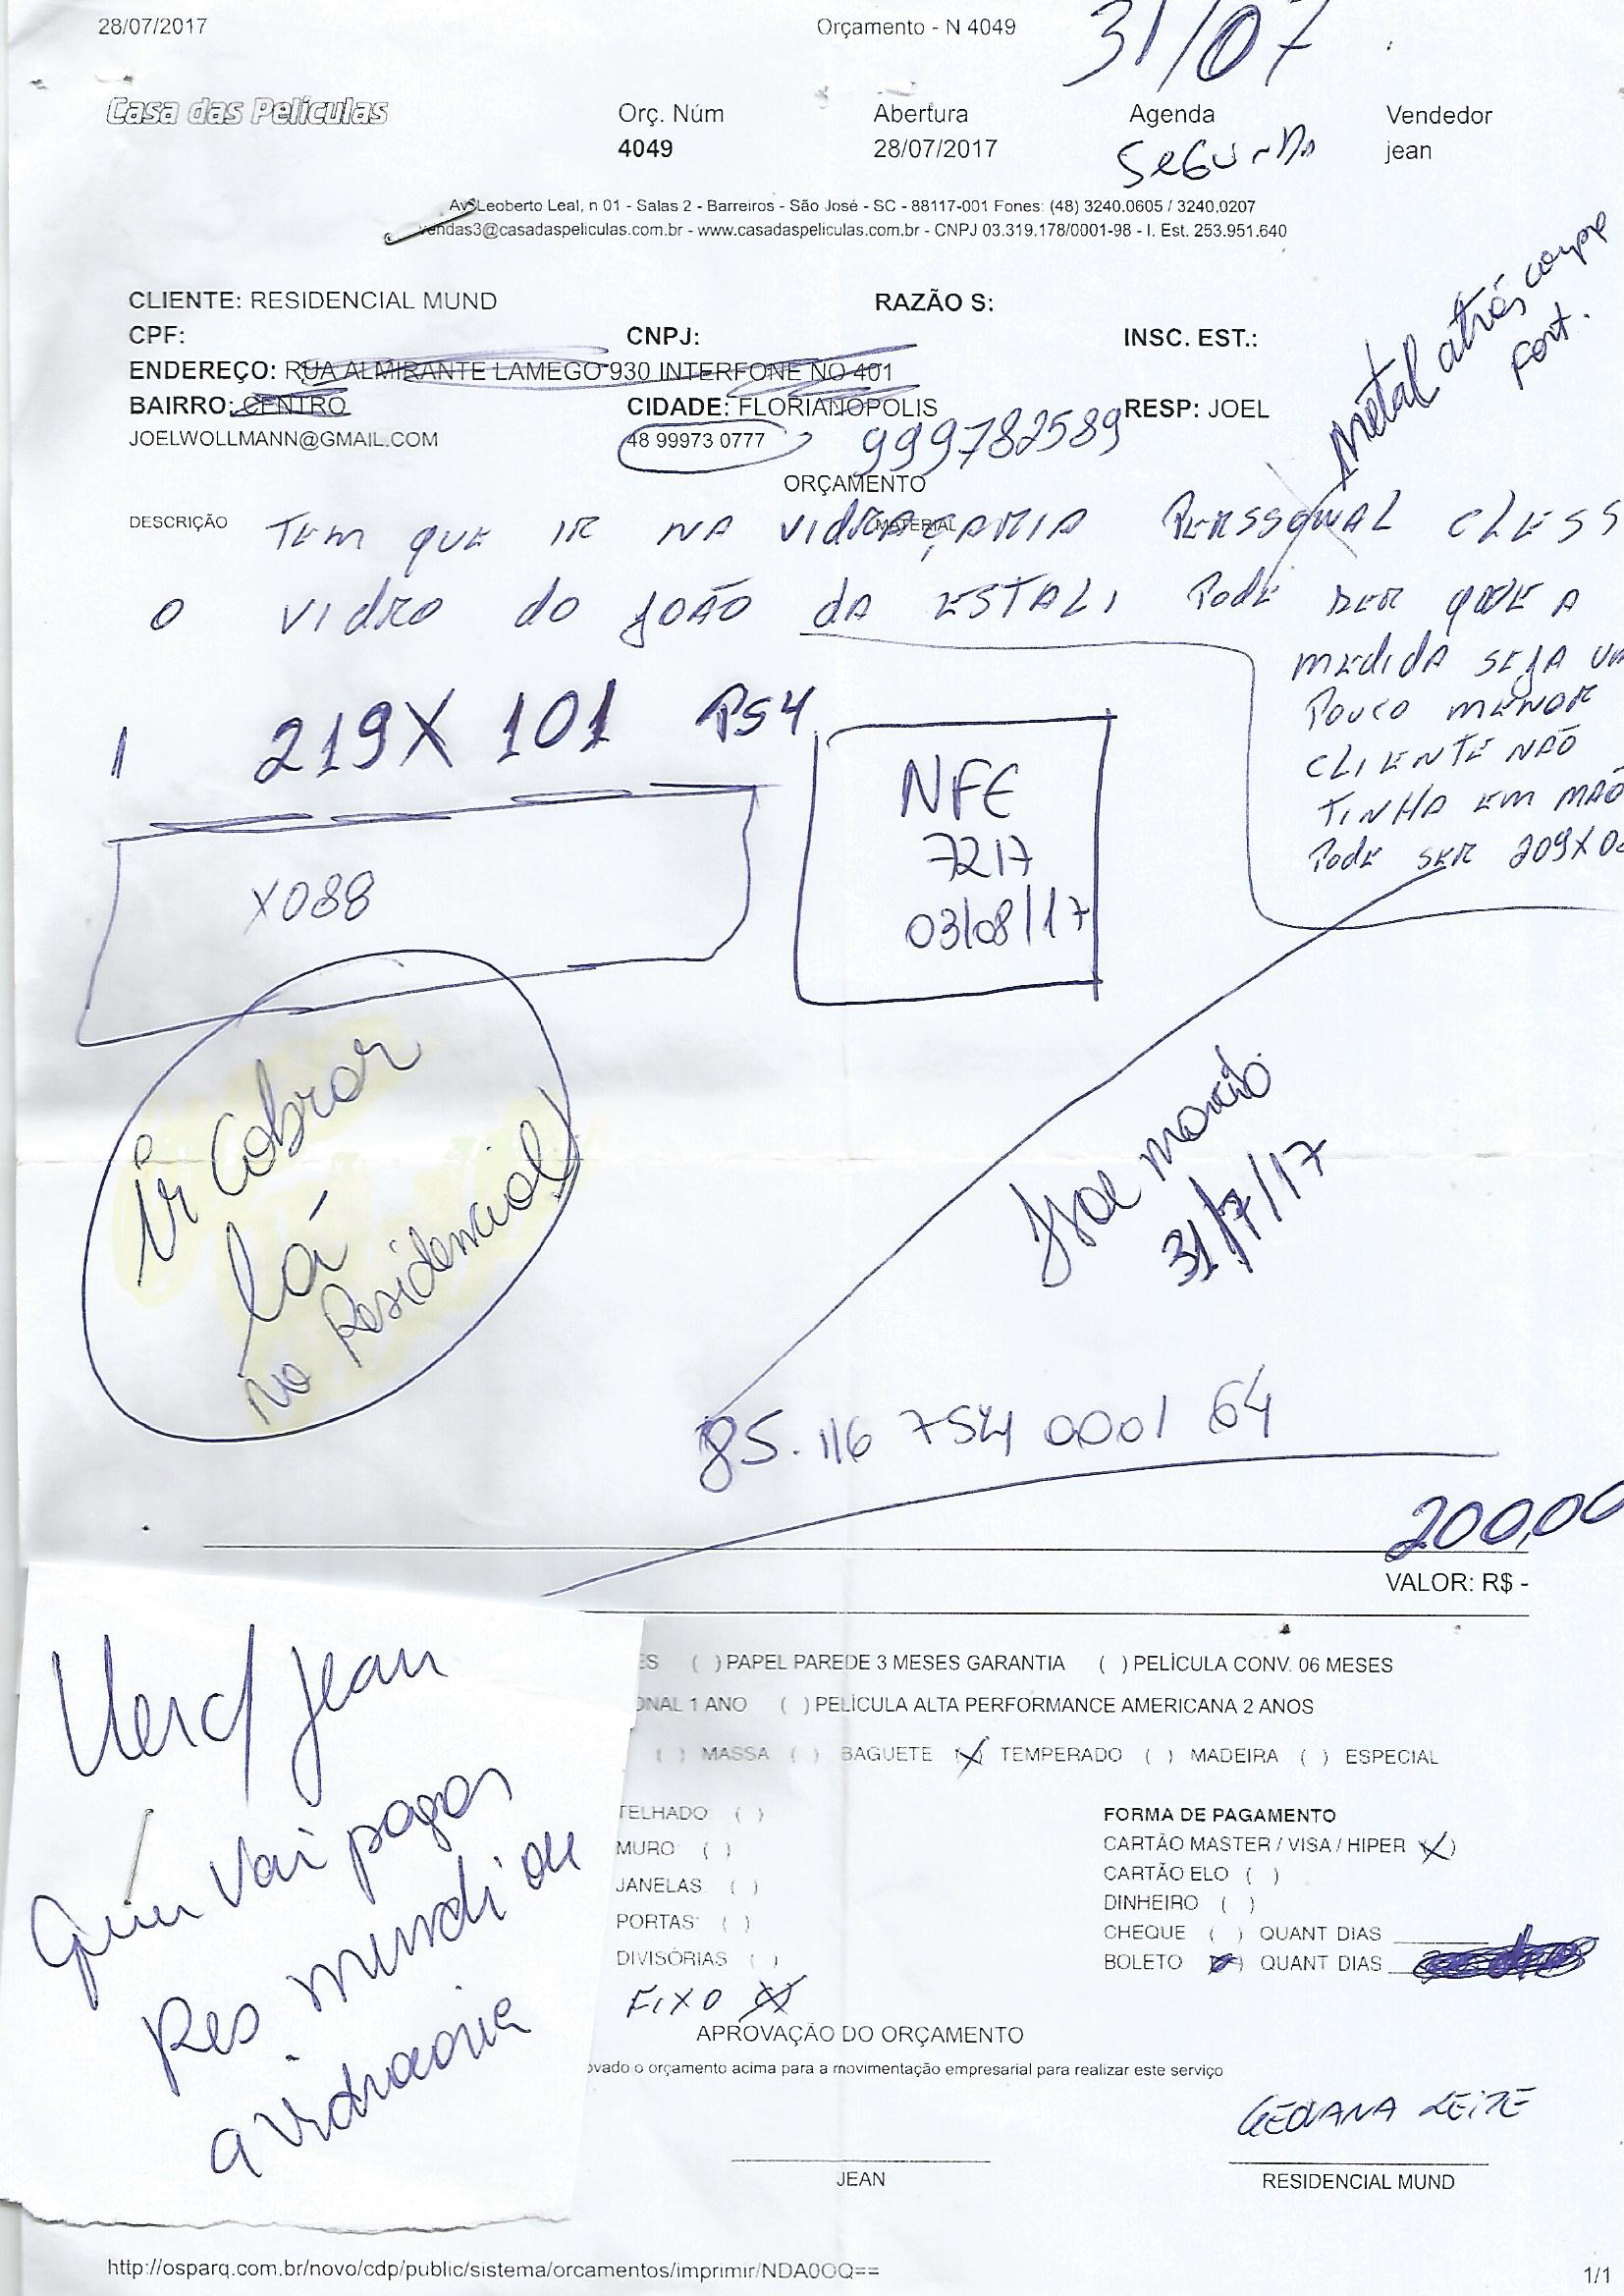 28/07/2017 Orçamento - N 4049 31/07
Casa das Películas
Orç. Núm Abertura Agenda Vendedor
4049 28/07/2017 SEGUNDA jean
Av. Leoberto Leal, n 01 - Salas 2 - Barreiros - São José - SC - 88117-001 Fones: (48) 3240.0605 / 3240.0207
vendas3@casadaspeliculas.com.br - www.casadaspeliculas.com.br - CNPJ 03.319.178/0001-98 - I. Est. 253.951.640
Metal atrás
CLIENTE: RESIDENCIAL MUND RAZÃO S:
CPF: CNPJ: INSC. EST.:
ENDEREÇO: RUA ALMIRANTE LAMEGO 930 INTERFONE NO 401
BAIRRO: CENTRO CIDADE: FLORIANOPOLIS RESP: JOEL
JOELWOLLMANN@GMAIL.COM 48 99973 0777 999782589
ORÇAMENTO
DESCRIÇÃO MATERIAL
TEM QUE IR NA VIDRAÇARIA PERSSONAL CLESS
O VIDRO DO JOÃO DA ESTALI PODE SER QUE A
MEDIDA SEJA UM
POUCO MENOR
CLIENTE NÃO
TINHA EM MAÕ
PODE SER 209X
1 219X101 PS4
X088
NFE
7217
03/08/17
Ir Cobrar
lá
no Residencial
31/7/17
85.116 754 0001 64
200,00
VALOR: R$ -
ES ( ) PAPEL PAREDE 3 MESES GARANTIA ( ) PELÍCULA CONV. 06 MESES
ONAL 1 ANO ( ) PELÍCULA ALTA PERFORMANCE AMERICANA 2 ANOS
( ) MASSA ( ) BAGUETE (X) TEMPERADO ( ) MADEIRA ( ) ESPECIAL
TELHADO ( )
MURO ( )
JANELAS ( )
PORTAS ( )
DIVISÓRIAS ( )
FIXO (X)
FORMA DE PAGAMENTO
CARTÃO MASTER / VISA / HIPER (X)
CARTÃO ELO ( )
DINHEIRO ( )
CHEQUE ( ) QUANT DIAS
BOLETO ( ) QUANT DIAS
Verd Jean
Quem vai pagar
Res. mundi ou
a vidraçaria
APROVAÇÃO DO ORÇAMENTO
ovado o orçamento acima para a movimentação empresarial para realizar este serviço
GEOVANA LEITE
JEAN RESIDENCIAL MUND
http://osparq.com.br/novo/cdp/public/sistema/orcamentos/imprimir/NDA0OQ== 1/1